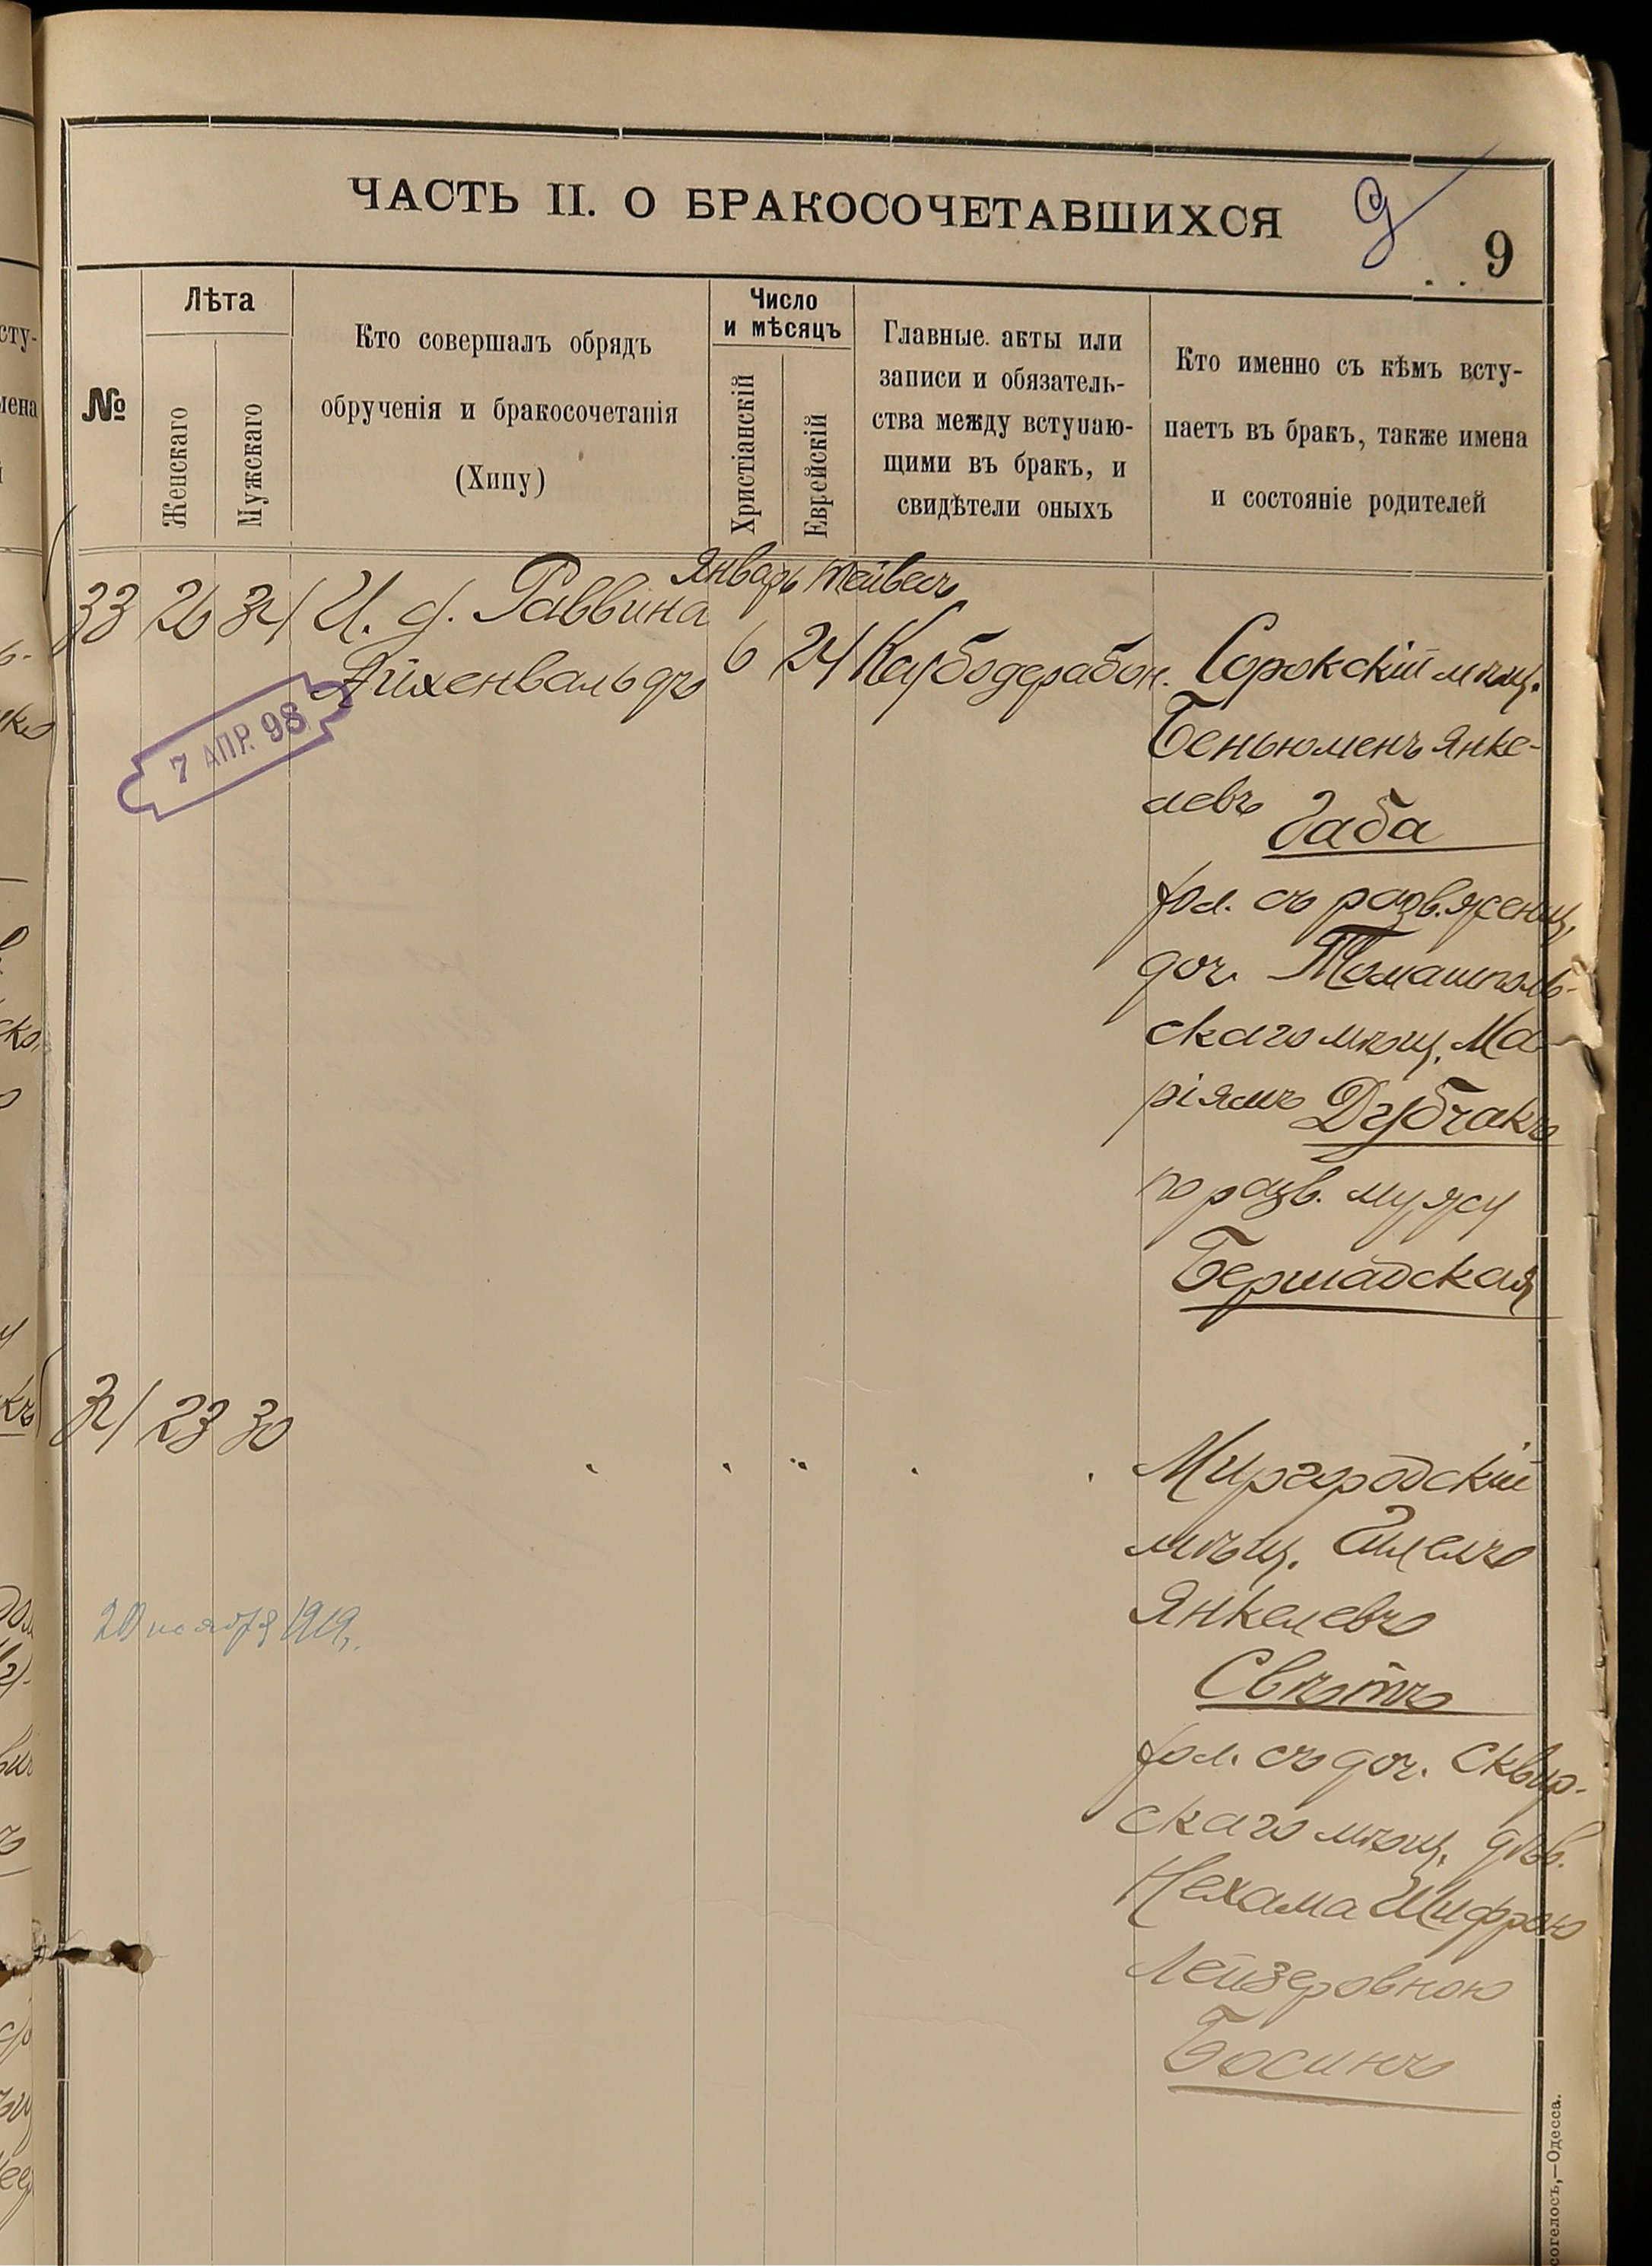 ЧАСТЬ II. О БРАКОСОЧЕТАВШИХСЯ
9
9
№
Лѣта
Женскаго
Мужскаго
Кто совершалъ обрядъ
обрученія и бракосочетанія
(Хипу)
Число
и мѣсяцъ
Христіанскій
Еврейскій
Главные. акты или
записи и обязатель-
ства между вступаю-
щими въ бракъ, и
свидѣтели оныхъ
Кто именно съ кѣмъ всту-
паетъ въ бракъ, также имена
и состояніе родителей
Январь Тейвесъ
33 26 34 И. д. Раввина
Айхенвальдъ 6 24 Каубодерабон. Сорокскій мѣщ.
Беньюменъ Янке-
левъ Габа
хол. съ разв. женщ.
доч. Томашполь-
скаго мѣщ. Ма-
ріямъ Дубчакъ
по разв. мужу
Бершадская
7 АПР. 98
34 23 30
Миргородскій
мѣщ.
Янкелевъ
Свѣтъ
хол. съ доч. Сквир-
скаго мѣщ. дѣв.
Нехама Шифрою
Лейзеровною
Босинъ
20 ноября 1919.
согелосъ,—Одесса.